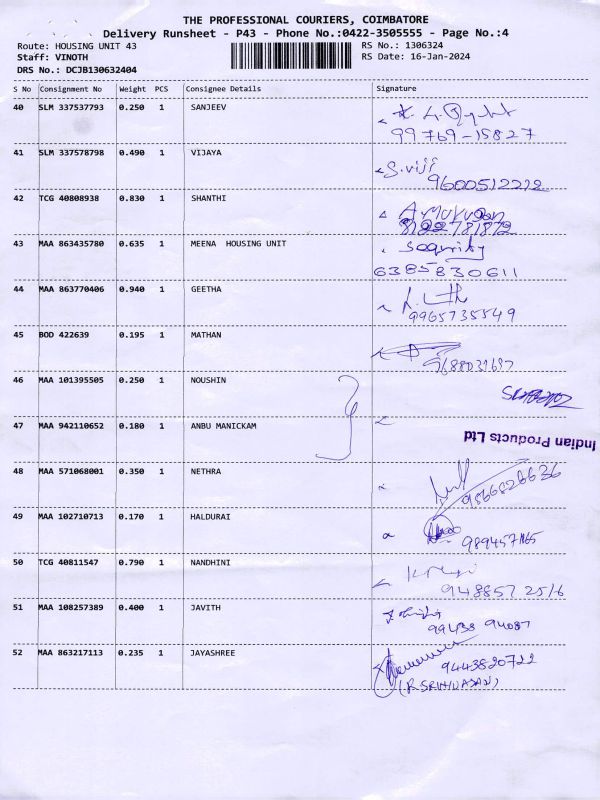 THE PROFESSIONAL COURIERS, COIMBATORE
Delivery Runsheet - P43 - Phone No.:0422-3505555 - Page No.:4
Route: HOUSING UNIT 43 RS No.: 1306324
Staff: VINOTH RS Date: 16-Jan-2024
DRS No.: DCJB130632404
S No Consignment No Weight PCS Consignee Details Signature
40 SLM 337537793 0.250 1 SANJEEV
99769-15827
41 SLM 337578798 0.490 1 VIJAYA S.viji
9600512212
42 TCG 40808938 0.830 1 SHANTHI A.Murugan
8122781872
43 MAA 863435780 0.635 1 MEENA HOUSING UNIT
6385830611
44 MAA 863770406 0.940 1 GEETHA
9965735549
45 BOD 422639 0.195 1 MATHAN
9688031697
46 MAA 101395505 0.250 1 NOUSHIN
47 MAA 942110652 0.180 1 ANBU MANICKAM
Indian Products Ltd
48 MAA 571068001 0.350 1 NETHRA
9566826636
49 MAA 102710713 0.170 1 HALDURAI
50 TCG 40811547 0.790 1 NANDHINI
51 MAA 108257389 0.400 1 JAVITH
99438 94087
52 MAA 863217113 0.235 1 JAYASHREE
9443820722
(R SRINIVASAN)